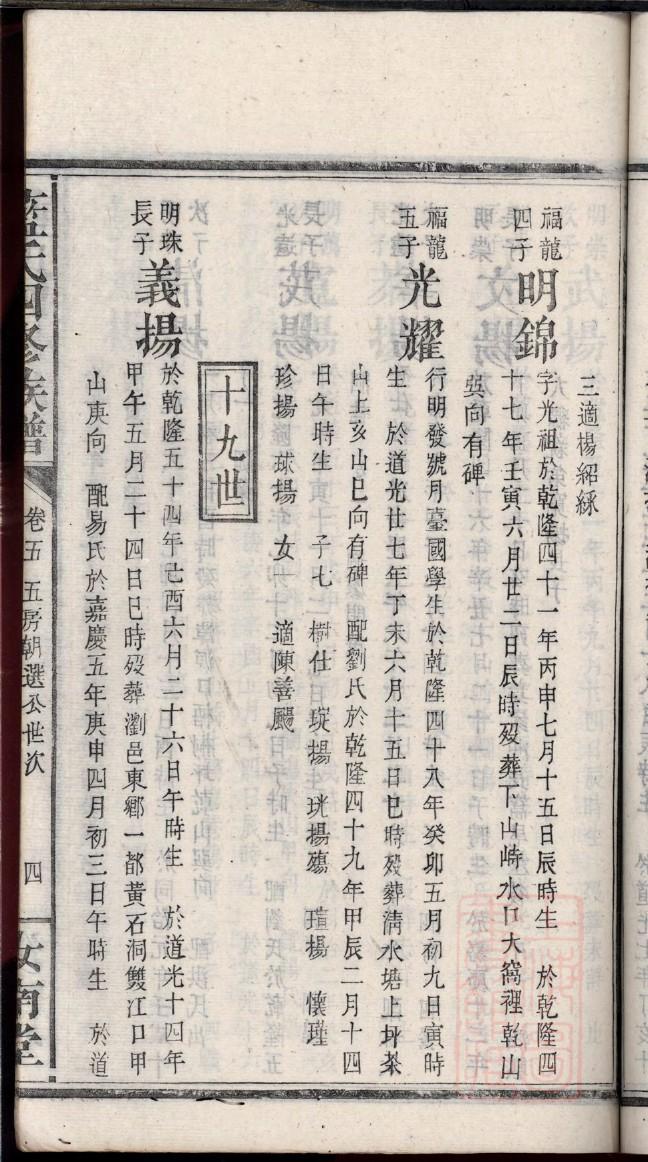 三適楊紹綵
福龍四子 明錦 字光祖於乾隆四十一年丙申七月十五日辰時生 於乾隆四
十七年壬寅六月廿二日辰時殁葬下山崎水口大窩裡乾山
巽向有碑
福龍五子 光耀 行明發號月臺國學生於乾隆四十八年癸卯五月初九日寅時
生 於道光廿七年丁未六月十五日巳時殁葬淸水塘上坪茶
山上亥山巳向有碑 配劉氏於乾隆四十九年甲辰二月十四
日午時生 子七 樹仕 日琁揚 珖揚殤 瑄揚 懷瑾
珍揚 球揚 女一 適陳善颺
十九世
明珠長子 義揚 於乾隆五十四年己酉六月二十六日午時生 於道光十四年
甲午五月二十四日巳時殁葬瀏邑東鄉一都黃石洞雙江口甲
山庚向 配易氏於嘉慶五年庚申四月初三日午時生 於道
藍氏四修族譜 卷五 五房朝選公世次 四 汝南堂